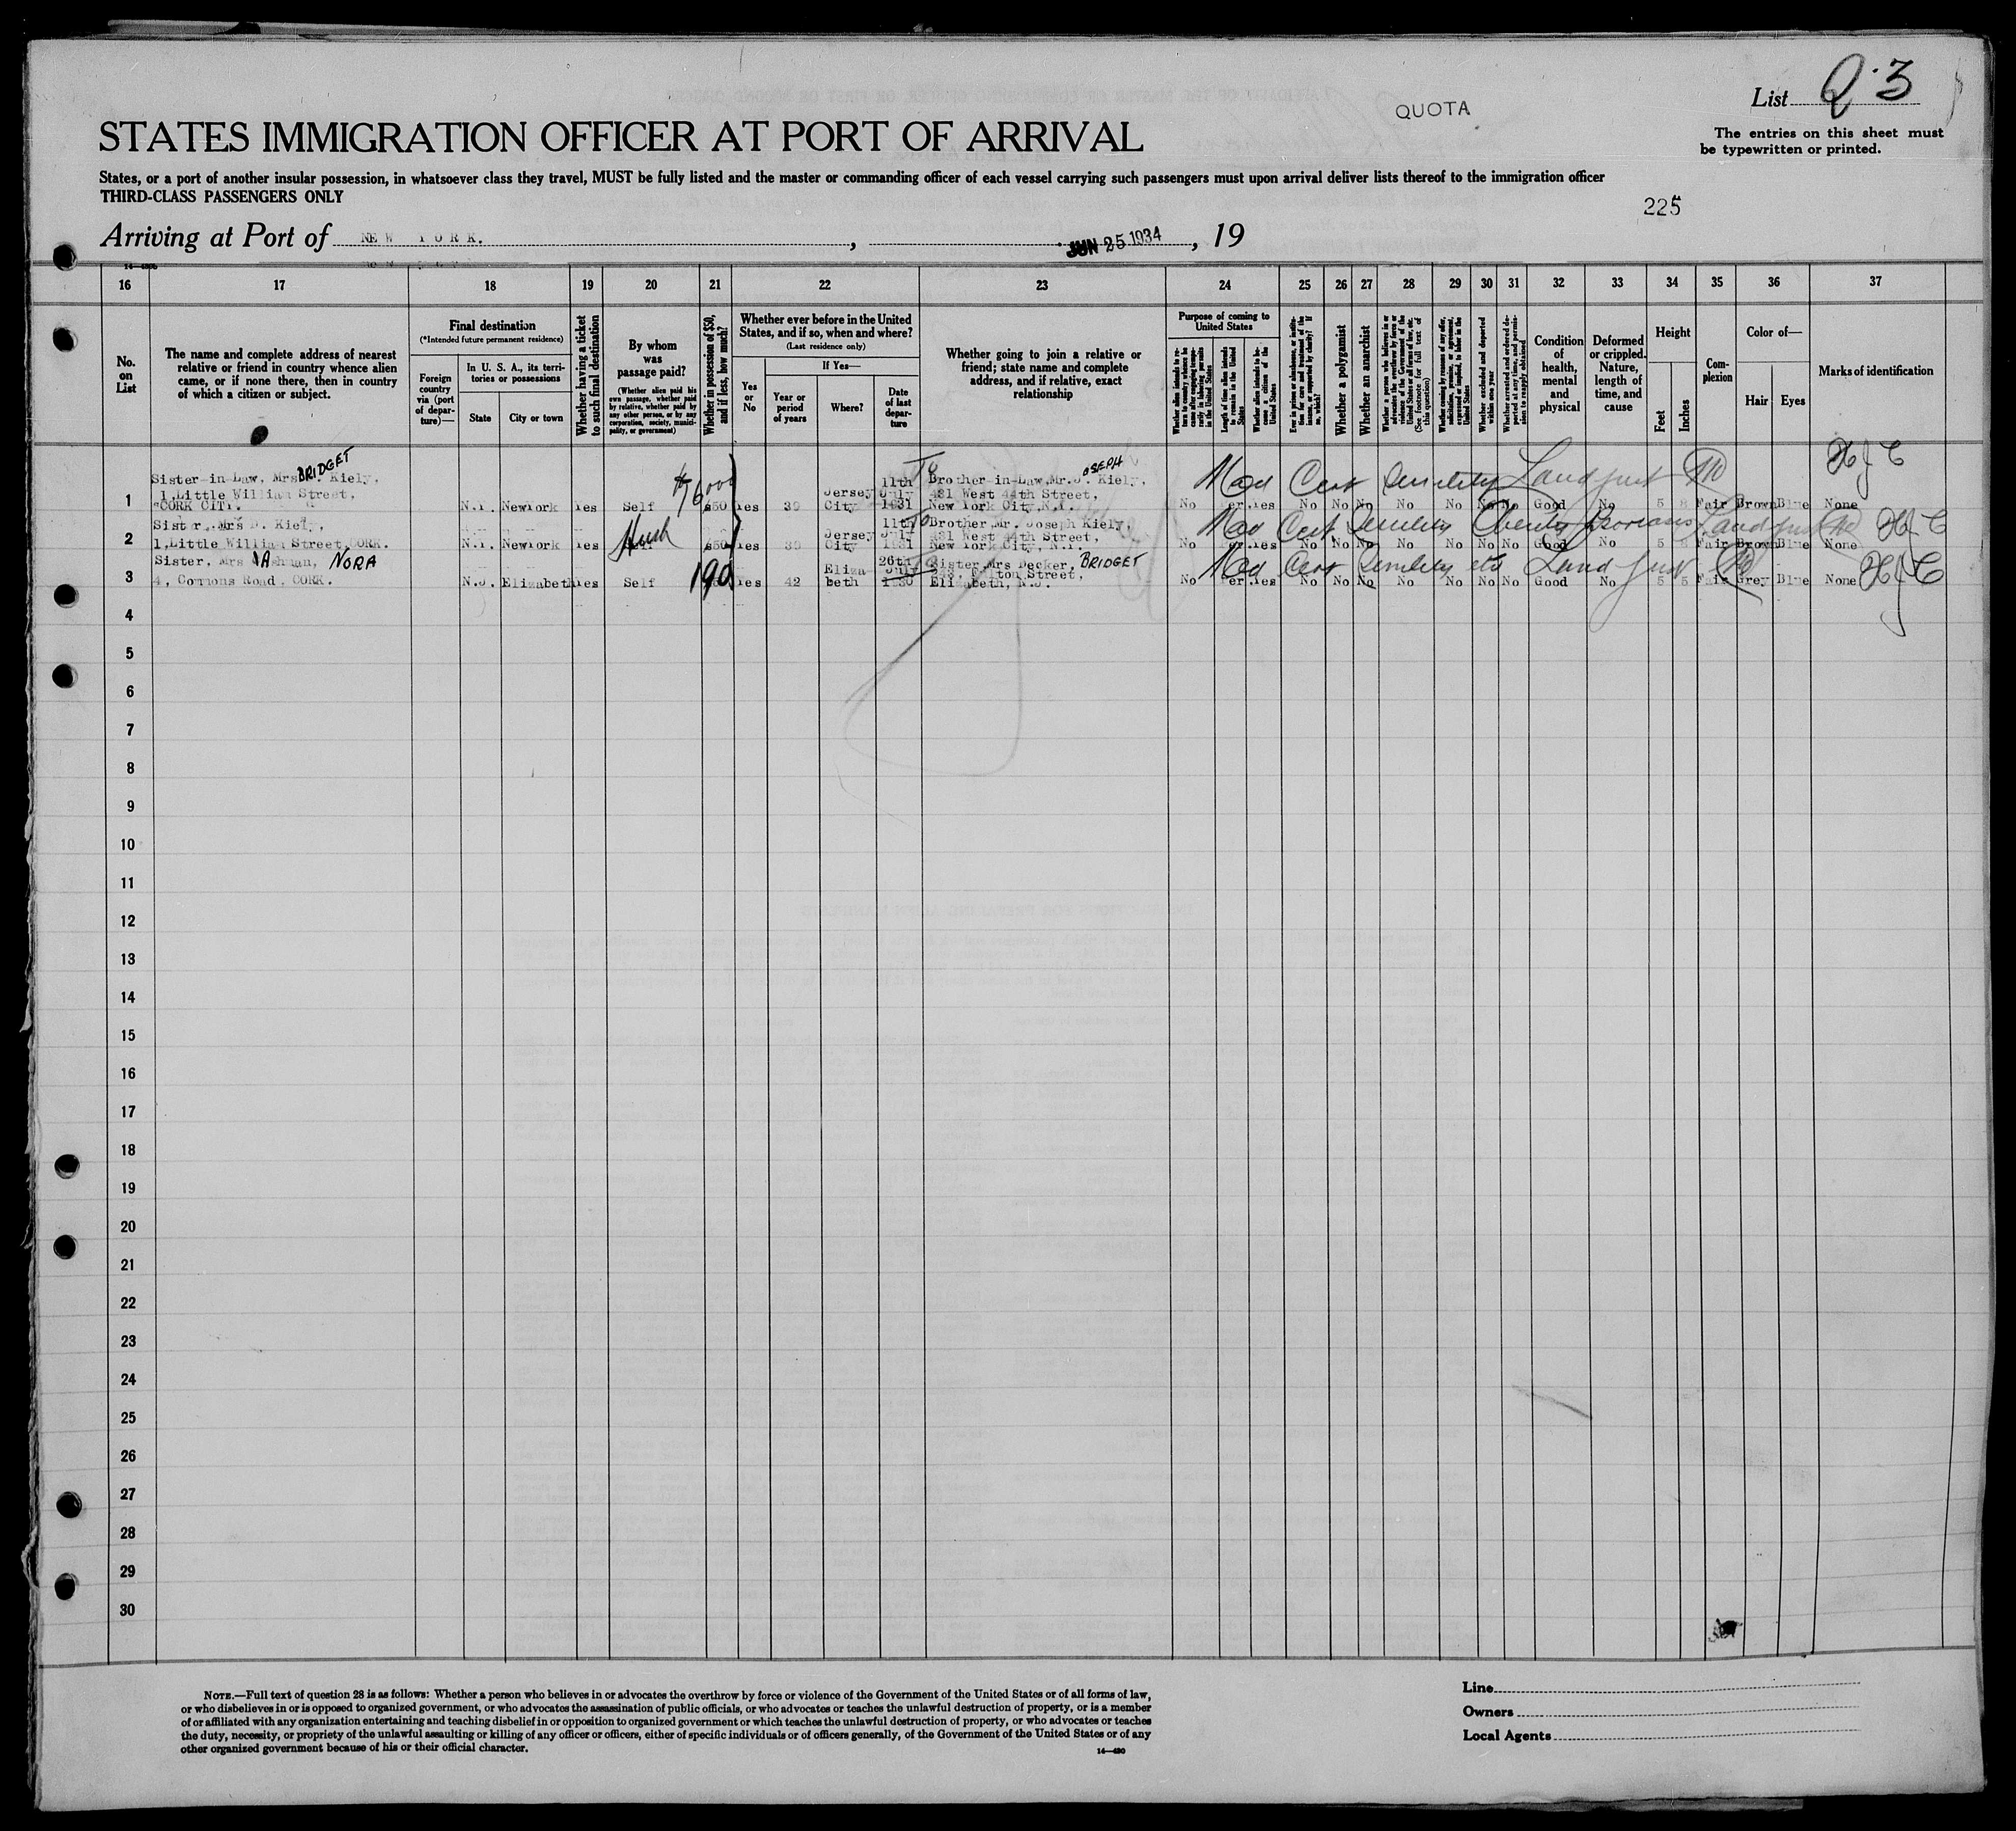 QUOTA
List Q 3
The entries on this sheet must
be typewritten or printed.
STATES IMMIGRATION OFFICER AT PORT OF ARRIVAL
States, or a port of another insular possession, in whatsoever class they travel, MUST be fully listed and the master or commanding officer of each vessel carrying such passengers must upon arrival deliver lists thereof to the immigration officer
THIRD-CLASS PASSENGERS ONLY
225
Arriving at Port of NEW YORK. , JUN 25 1934 , 19
16 17 18 19 20 21 22 23 24 25 26 27 28 29 30 31 32 33 34 35 36 37
No.
on
List
The name and complete address of nearest
relative or friend in country whence alien
came, or if none there, then in country
of which a citizen or subject.
Final destination
(*Intended future permanent residence)
Foreign
country
via (port
of depar-
ture)—
In U. S. A., its terri-
tories or possessions
State
City or town
Whether having a ticket
to such final destination
By whom
was
passage paid?
(Whether alien paid his
own passage, whether paid
by relative, whether paid by
any other person, or by any
corporation, society, munici-
pality, or government)
Whether in possession of $50,
and if less, how much?
Whether ever before in the United
States, and if so, when and where?
(Last residence only)
Yes
or
No
If Yes—
Year or
period
of years
Where?
Date
of last
depar-
ture
Whether going to join a relative or
friend; state name and complete
address, and if relative, exact
relationship
Purpose of coming to
United States
Length of time alien intends
to remain in the United
States
Whether alien intends to be-
come a citizen of the
United States
Whether a polygamist
Whether an anarchist
Condition
of
health,
mental
and
physical
Deformed
or crippled.
Nature,
length of
time, and
cause
Height
Feet
Inches
Com-
plexion
Color of—
Hair
Eyes
Marks of identification
1 Sister-in-Law, Mrs BRIDGET Kiely,
1, Little William Street,
CORK CITY.
N.Y. NewYork Yes Self $50 Yes 30 Jersey City 11th July 1931
Brother-in-Law, Mr. JOSEPH Kiely,
431 West 44th Street,
New York City, N.Y.
No Per. Yes No No No No No No No Good No 5 8 Fair Brown Blue None
Med Cert Senility Land
2 Sister, Mrs B. Kiely,
1, Little William Street, CORK.
N.Y. NewYork Yes Hush $50 Yes 30 Jersey City 11th July 1931
Brother, Mr. Joseph Kiely,
431 West 44th Street,
New York City, N.Y.
No Per. Yes No No No No No No No Good No 5 Fair Brown Blue None
Med Cert Senility
3 Sister, Mrs NORA
4, Commons Road, CORK.
N.J. Elizabeth Yes Self 190 Yes 42 Elizabeth 26th July 1930
Sister, Mrs Decker, BRIDGET
Street,
Elizabeth, N.J.
No Per. Yes No No No No No No No Good No 5 5 Fair Grey Blue None
Med Cert Senility etc Land
4
5
6
7
8
9
10
11
12
13
14
15
16
17
18
19
20
21
22
23
24
25
26
27
28
29
30
NOTE.—Full text of question 28 is as follows: Whether a person who believes in or advocates the overthrow by force or violence of the Government of the United States or of all forms of law,
or who disbelieves in or is opposed to organized government, or who advocates the assassination of public officials, or who advocates or teaches the unlawful destruction of property, or is a member
of or affiliated with any organization entertaining and teaching disbelief in or opposition to organized government or which teaches the unlawful destruction of property, or who advocates or teaches
the duty, necessity, or propriety of the unlawful assaulting or killing of any officer or officers, either of specific individuals or of officers generally, of the Government of the United States or of any
other organized government because of his or their official character.
14—480
Line
Owners
Local Agents